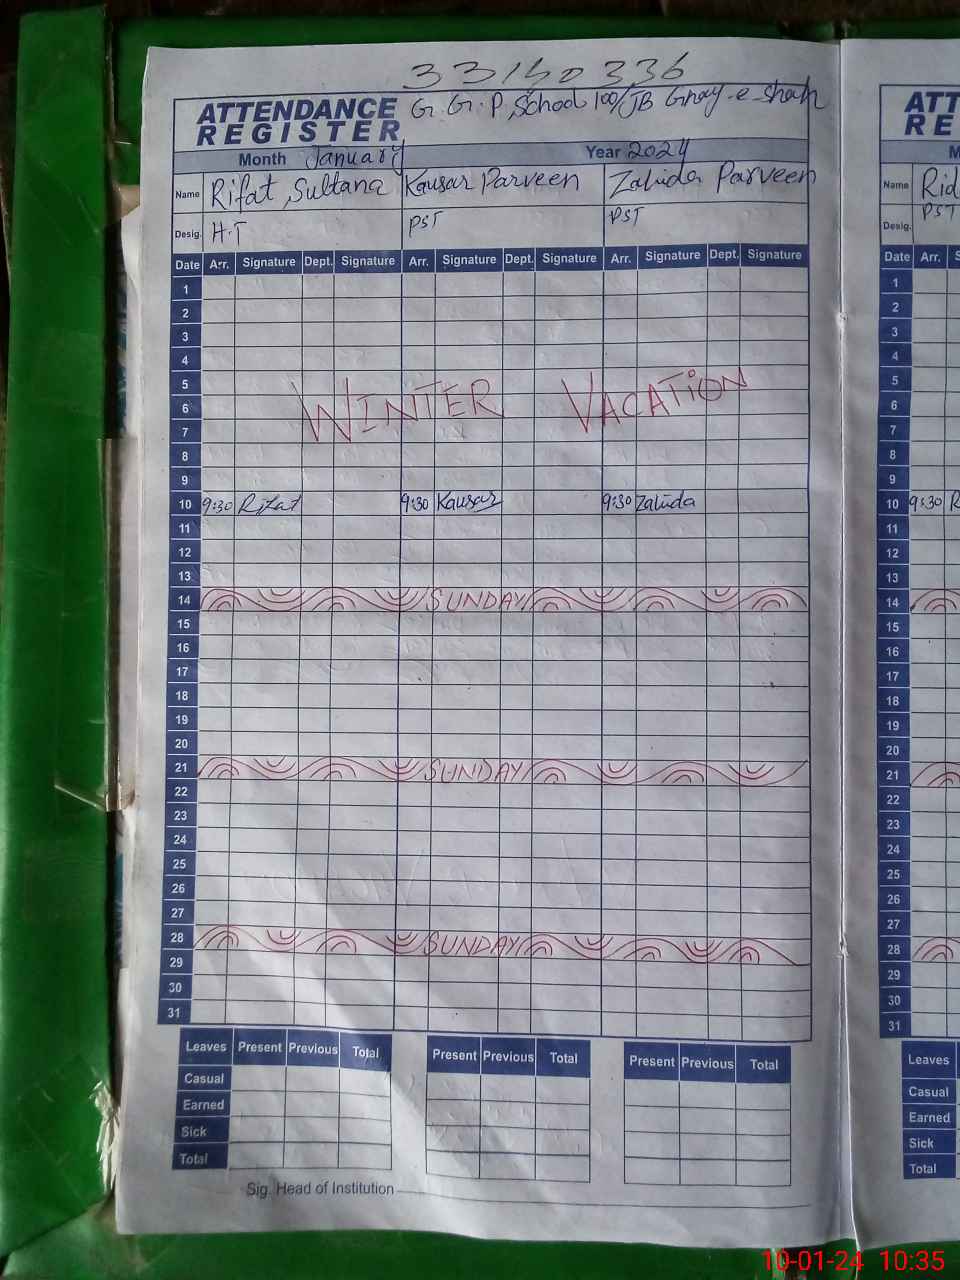 33150336
ATTENDANCE REGISTER
G.G.P, School 100/JB Ghay-e-Shah
Month January Year 2024
Name Rifat Sultana Kausar Parveen Zahida Parveen
Desig. H.T PST PST
Date Arr. Signature Dept. Signature Arr. Signature Dept. Signature Arr. Signature Dept. Signature
1
2
3
4
5
6
WINTER VACATION
7
8
9
10 9:30 Rifat 9:30 Kausar 9:30 Zahida
11
12
13
14 SUNDAY
15
16
17
18
19
20
21 SUNDAY
22
23
24
25
26
27
28 SUNDAY
29
30
31
Leaves Present Previous Total Present Previous Total Present Previous Total
Casual
Earned
Sick
Total
Sig. Head of Institution
ATT
RE
M
Name Rid
Desig. PST
Date Arr. S
1
2
3
4
5
6
7
8
9
10 9:30 R
11
12
13
14
15
16
17
18
19
20
21
22
23
24
25
26
27
28
29
30
31
Leaves
Casual
Earned
Sick
Total
10-01-24 10:35